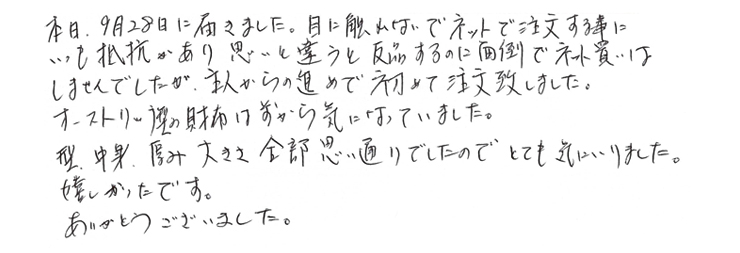 本日、9月28日に届きました。目に触れないでネットで注文する事に
いつも抵抗があり思いと違うと返品するのに面倒でネット買いは
しませんでしたが、主人からの進めで初めて注文致しました。
オーストリッチの財布は前から気になっていました。
型、中身、厚み 大きさ 全部 思い通りでしたので とても 気にいりました。
嬉しかったです。
ありがとうございました。